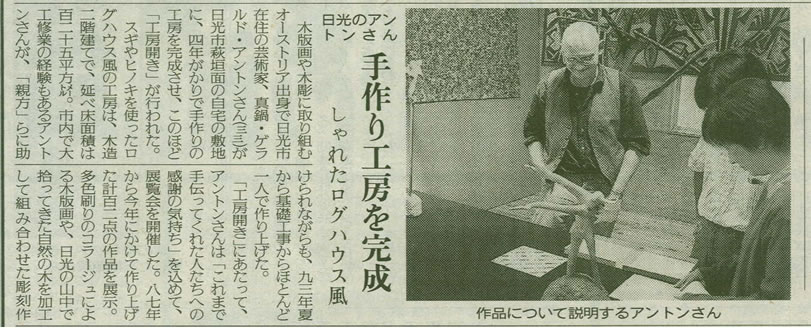 日光のアン
トンさん
手作り工房を完成
しゃれたログハウス風
木版画や木彫に取り組む
オーストリア出身で日光市
在住の芸術家、真鍋・ゲラ
ルド・アントンさん(三三)が
日光市萩垣面の自宅の敷地
に、四年がかりで手作りの
工房を完成させ、このほど
「工房開き」が行われた。
スギやヒノキを使ったロ
グハウス風の工房は、木造
二階建てで、延べ床面積は
百二十五平方㍍。市内で大
工修業の経験もあるアント
ンさんが、「親方」らに助
けられながらも、九三年夏
から基礎工事からほとんど
一人で作り上げた。
「工房開き」にあたって、
アントンさんは「これまで
手伝ってくれた人たちへの
感謝の気持ち」を込めて、
展覧会を開催した。八七年
から今年にかけて作り上げ
た計百二点の作品を展示。
多色刷りのコラージュによ
る木版画や、日光の山中で
拾ってきた自然の木を加工
して組み合わせた彫刻作
作品について説明するアントンさん